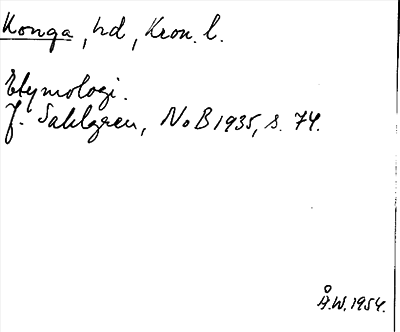 Konga, hd, Kron. l.
Etymologi.
J. Sahlgren, NoB 1935, s. 74.
Å.W. 1954.